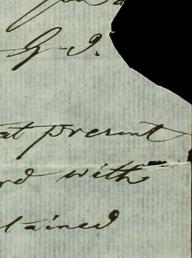 G. I.
at present
rd with
tained